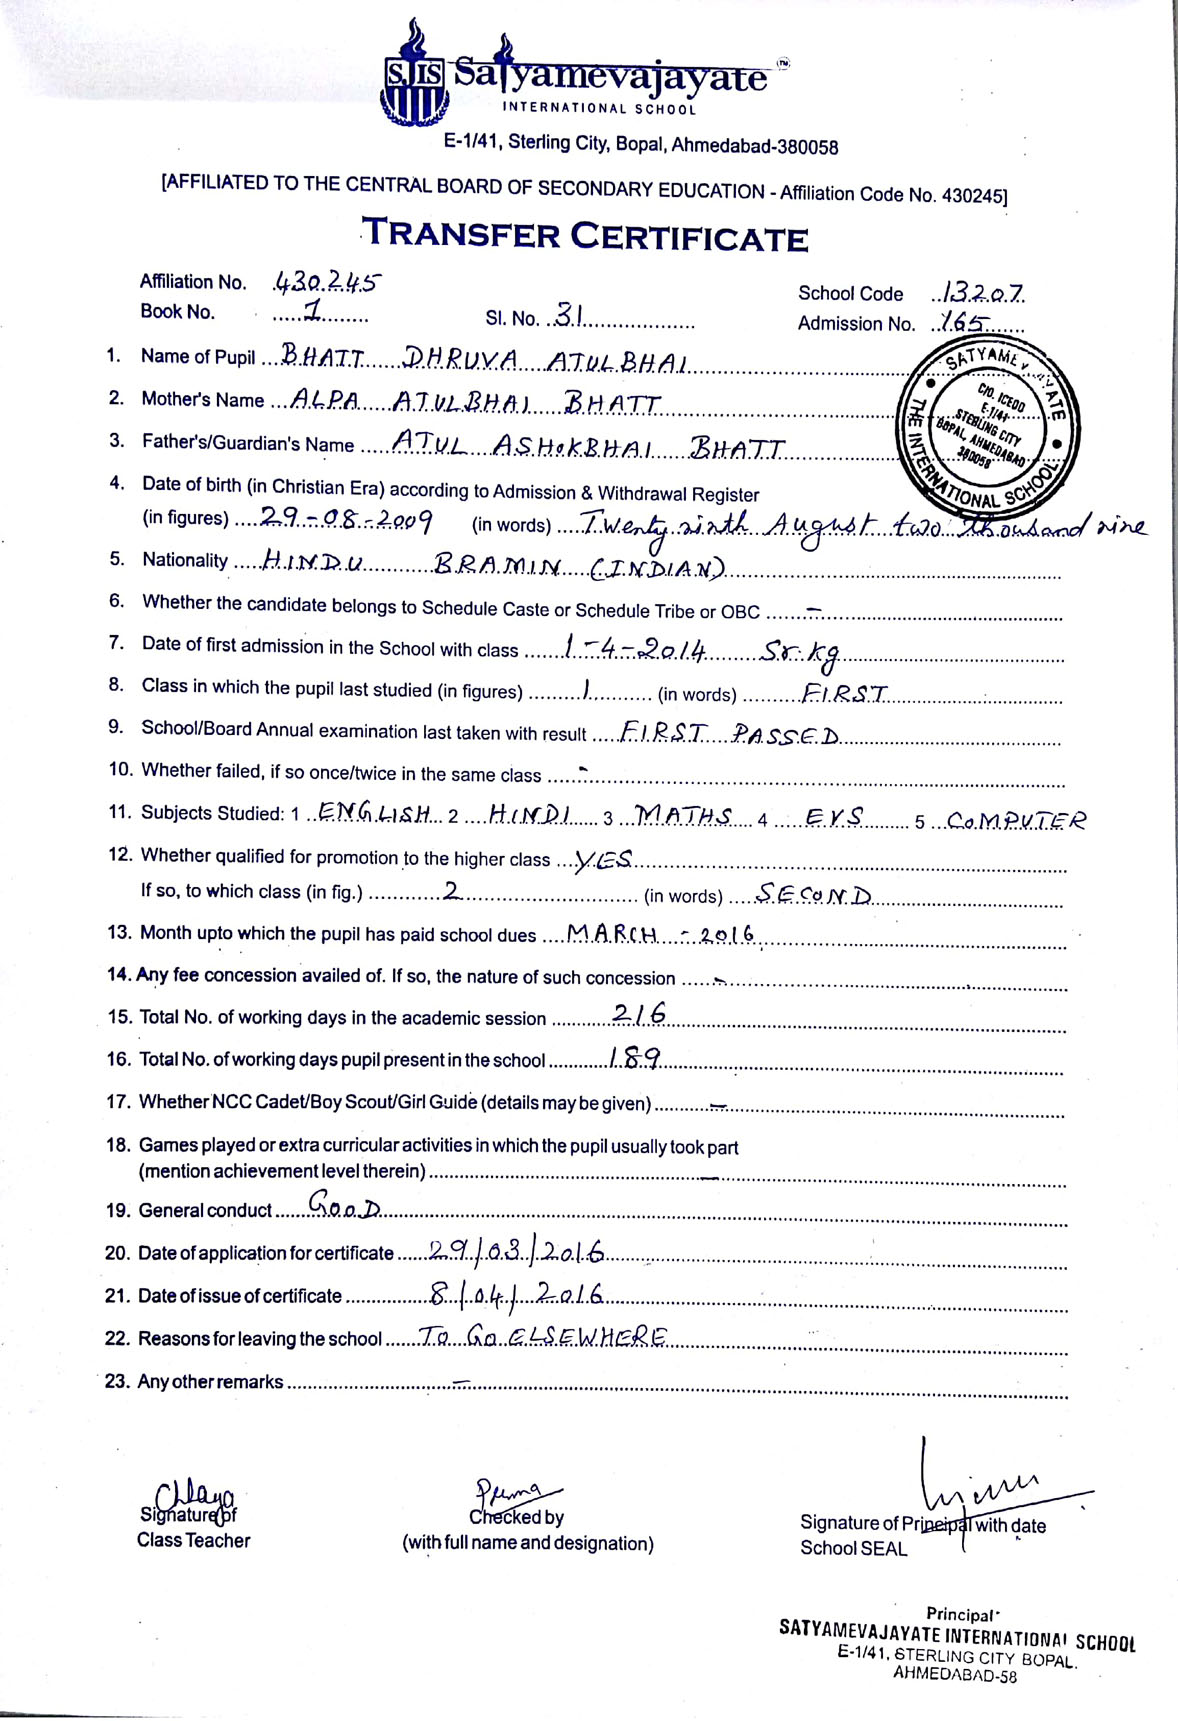 SJIS Satyamevajayate TM
INTERNATIONAL SCHOOL
E-1/41, Sterling City, Bopal, Ahmedabad-380058
[AFFILIATED TO THE CENTRAL BOARD OF SECONDARY EDUCATION - Affiliation Code No. 430245]
TRANSFER CERTIFICATE
Affiliation No. 430245
School Code 13207
Book No. 1 Sl. No. 31 Admission No. 165
1. Name of Pupil BHATT DHRUVA ATULBHAI
2. Mother's Name ALPA ATULBHAI BHATT
3. Father's/Guardian's Name ATUL ASHOKBHAI BHATT
SATYAMEVAJAYATE
THE INTERNATIONAL SCHOOL
C/O. ICEOD
E-1/41
STERLING CITY
BOPAL, AHMEDABAD
380058
4. Date of birth (in Christian Era) according to Admission & Withdrawal Register
(in figures) 29-08-2009 (in words) Twenty ninth August two thousand nine
5. Nationality HINDU BRAMIN (INDIAN)
6. Whether the candidate belongs to Schedule Caste or Schedule Tribe or OBC -
7. Date of first admission in the School with class 1-4-2014 Sr. kg
8. Class in which the pupil last studied (in figures) 1 (in words) FIRST
9. School/Board Annual examination last taken with result FIRST PASSED
10. Whether failed, if so once/twice in the same class -
11. Subjects Studied: 1 ENGLISH 2 HINDI 3 MATHS 4 EVS 5 COMPUTER
12. Whether qualified for promotion to the higher class YES
If so, to which class (in fig.) 2 (in words) SECOND
13. Month upto which the pupil has paid school dues MARCH - 2016
14. Any fee concession availed of. If so, the nature of such concession -
15. Total No. of working days in the academic session 216
16. Total No. of working days pupil present in the school 189
17. Whether NCC Cadet/Boy Scout/Girl Guide (details may be given) -
18. Games played or extra curricular activities in which the pupil usually took part
(mention achievement level therein) -
19. General conduct GOOD
20. Date of application for certificate 29/03/2016
21. Date of issue of certificate 8/04/2016
22. Reasons for leaving the school TO GO ELSEWHERE
23. Any other remarks -
Chhaya Prerna
Signature of Checked by Signature of Principal with date
Class Teacher (with full name and designation) School SEAL
Principal
SATYAMEVAJAYATE INTERNATIONAL SCHOOL
E-1/41, STERLING CITY BOPAL,
AHMEDABAD-58